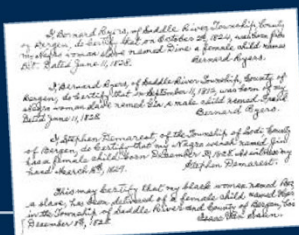 I, Bernard Ryers, of Saddle River Township, County
of Bergen, do certify that on October 2, 1824, was born from
my Negro woman slave named Dine a female child names
Bet. Dated June 11, 1828.
Bernard Ryers.
I, Bernard Ryers, of Saddle River Township, County of
Bergen, do certify that in September 11, 1812, was born of my
Negro woman slave named Gin a male child named
Dated June 11, 1828
Bernard Ryers.
I, Stephen Demarest, of the Township of Lodi, County
of Bergen, do certify that my Negro wench named Gin
has a female child born December 31, 1828. As witness my
hand March 5th, 1829.
Stephen Demarest.
This may certify that my black woman named
a slave, has been delivered of a female child named
in the Township of Saddle River and County of Bergen,
December 18th, 1828.
Isaac Van Saun.